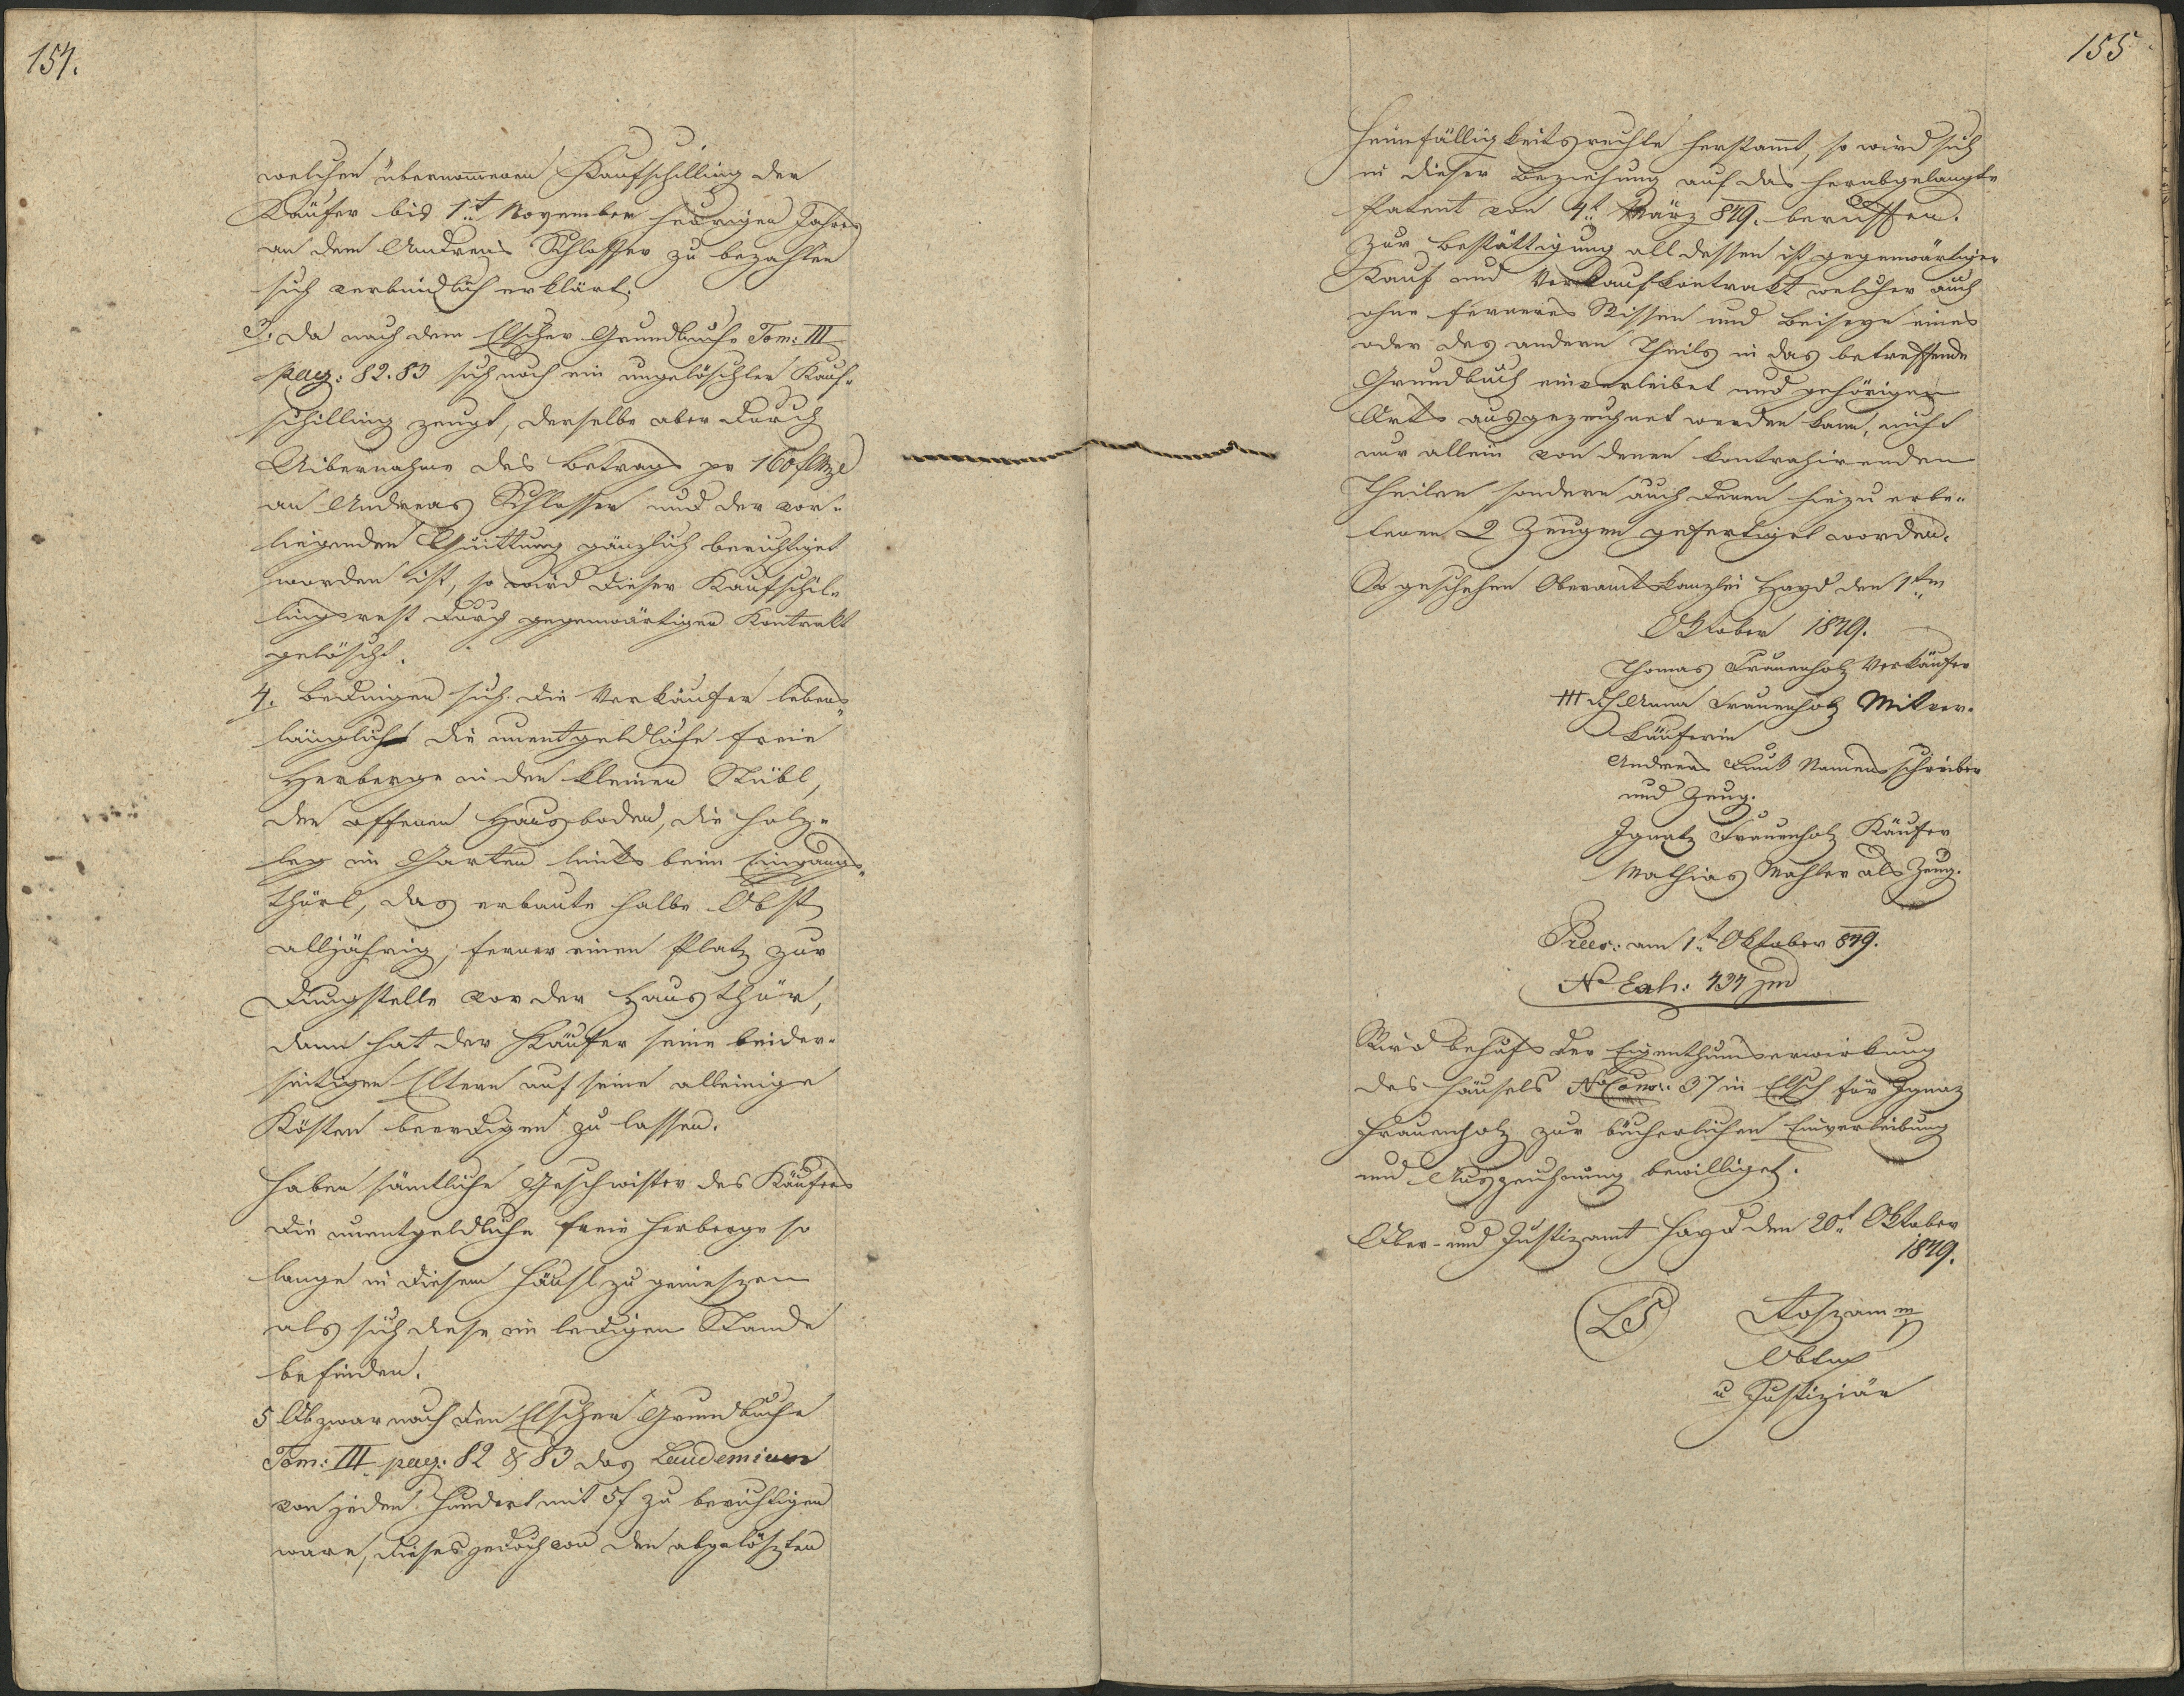 154.
welchen übernommenen Kaufschilling der
Käufer bis 1t November heurigen Jahres
an dem Andreas Schlosser zu bezahlen
sich verbindlich erklärt.
3. Da nach dem Elscher Grundbuche Tom: III
pag: 82. 83 sich noch ein ungelöschter Kauf-
schilling zeugt, derselbe aber durch
Uibernahme des Betrags pr 160 f
an Andreas Schlosser und der vor-
liegenden Quittung gänzlich berichtiget
worden ist, so wird dieser Kaufschil-
lingsrest durch gegenwärtigen Kontrakt
gelöscht.
4. Bedingen sich die Verkäufer lebens-
länglich die unentgeldliche freie
Herberge in den kleinen Stübl,
den offenen Hausboden, die Holz-
leg im Garten links beim Eingangs-
thürl, das erbaute halbe Obst
alljährig, ferner einen Platz zur
Dungstelle vor der Hausthür,
dann hat der Käufer seine beider-
seitigen Eltern auf seine alleinige
Kösten beerdigen zu lassen.
Haben sämtliche Geschwister des Käufers
die unentgeldliche freie Herberge so
lange in diesem Häusl zu geniessen
als sich diese im ledigen Stande
befinden.
5 Obzwar nach den Elscher Grundbuche
Tom: III pag: 82 & 83 das Laudemium
von jeden Hundert mit 5 f zu berichtigen
ware, dieses jedoch von den abgelösten
155
Heimfälligkeitsrechte herstamt, so wird sich
in dieser Beziehung auf das herabgelangte
Patent von 4t März 849. beruffen.
Zur Bestättigung all dessen ist gegenwärtiger
Kauf und Verkaufkontrakt welcher auch
ohne ferneres Wissen und Beiseyn eines
oder des andern Theils in das betreffende
Grundbuch einverleibet und gehörigen
Orts ausgezeichnet werden kann, nicht
nur allein von denen kontrahirenden
Theilen sondern auch denen hiezu erbe-
tenen 2 Zeugen gefertiget worden.
So geschehen Oberamtskanzlei Hayd den 1ten
Oktober 1849.
Thomas Frauenholz Verkäufer
+++ Anna Frauenholz Mitver-
käuferin
Andreas Namensschreiber
und Zeug.
Ignatz Frauenholz Käufer
Mathias Mahler als Zeug.
Præs: am 1t Oktober 849.
No Exh: 434 jud
Wird behufs der Eigenthumserwirkung
des Häusels No Consc: 37 in Elsch für Ignaz
Frauenholz zur bücherlichen Einverleibung
und Auszeichnung bewilliget.
Ober- und Justizamt Hayd den 20t Oktober
1849.
LS
u Justiziär